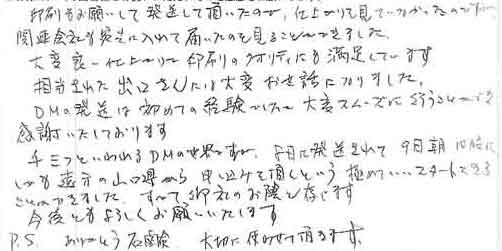 印刷をお願いして発送して頂いたので、仕上がりを見ていなかったのですが
関連会社を宛先に入れて届いたのを見ることができました。
大変良い仕上がりで印刷のクオリティにも満足しています
担当された出口さんには大変お世話になりました。
DMの発送は初めての経験でしたが大変スムーズに行うことができ
感謝いたしております
千三つといわれるDMの世界ですが、8日に発送されて9日朝10時に
しかも遠方の山口県から申し込みを頂くという極めて……スタートできる
ことができました。すべて御社のお陰と存じます
今後ともよろしくお願いいたします
P.S. ありがとう石鹸 大切に使わせて頂きます。